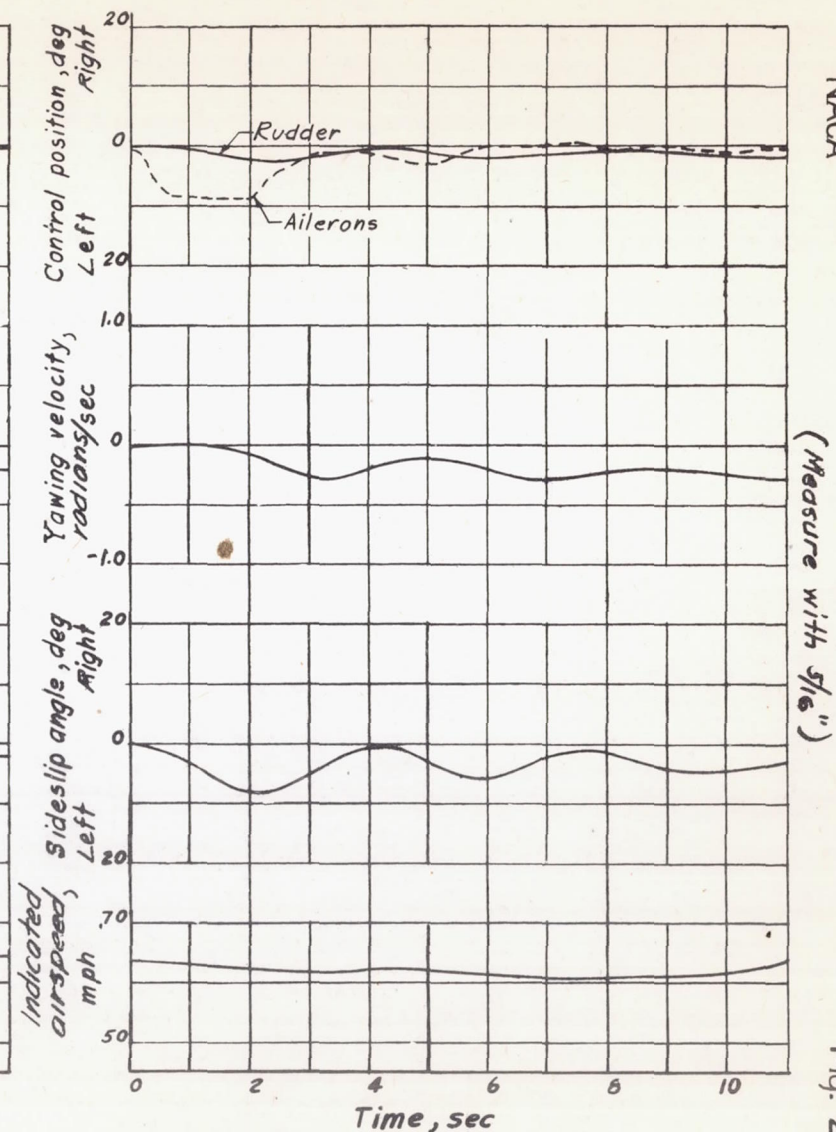 20
Control position, deg
Right
Left
0
Rudder
Ailerons
20
1.0
Yawing velocity,
radians/sec
0
-1.0
20
Sideslip angle, deg
Right
Left
0
20
Indicated
airspeed,
mph
70
50
0 2 4 6 8 10
Time, sec
NACA
(Measure with 5/16")
Fig. 2